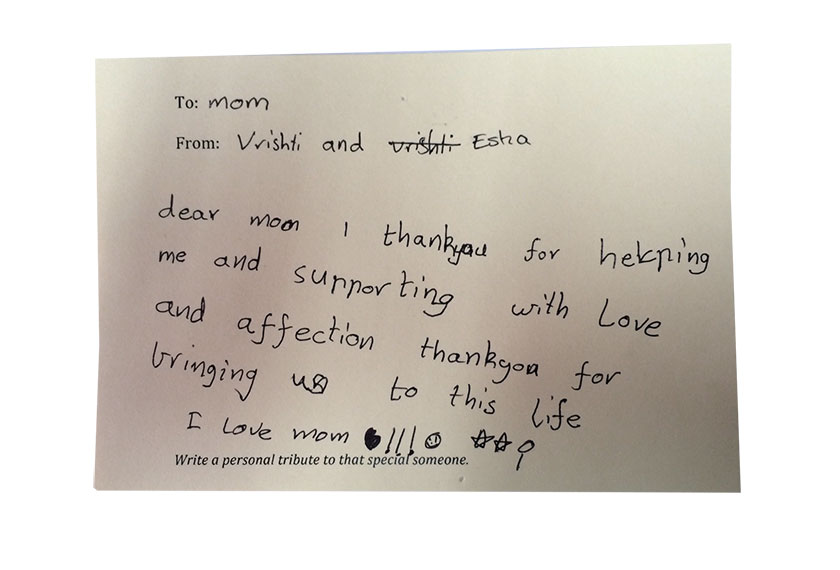 To: mom
From: Vrishti and vrishti Esha
dear mom I thankyou for hekping
me and supporting with Love
and affection thankyou for
bringing us to this life
I Love mom !!!
Write a personal tribute to that special someone.